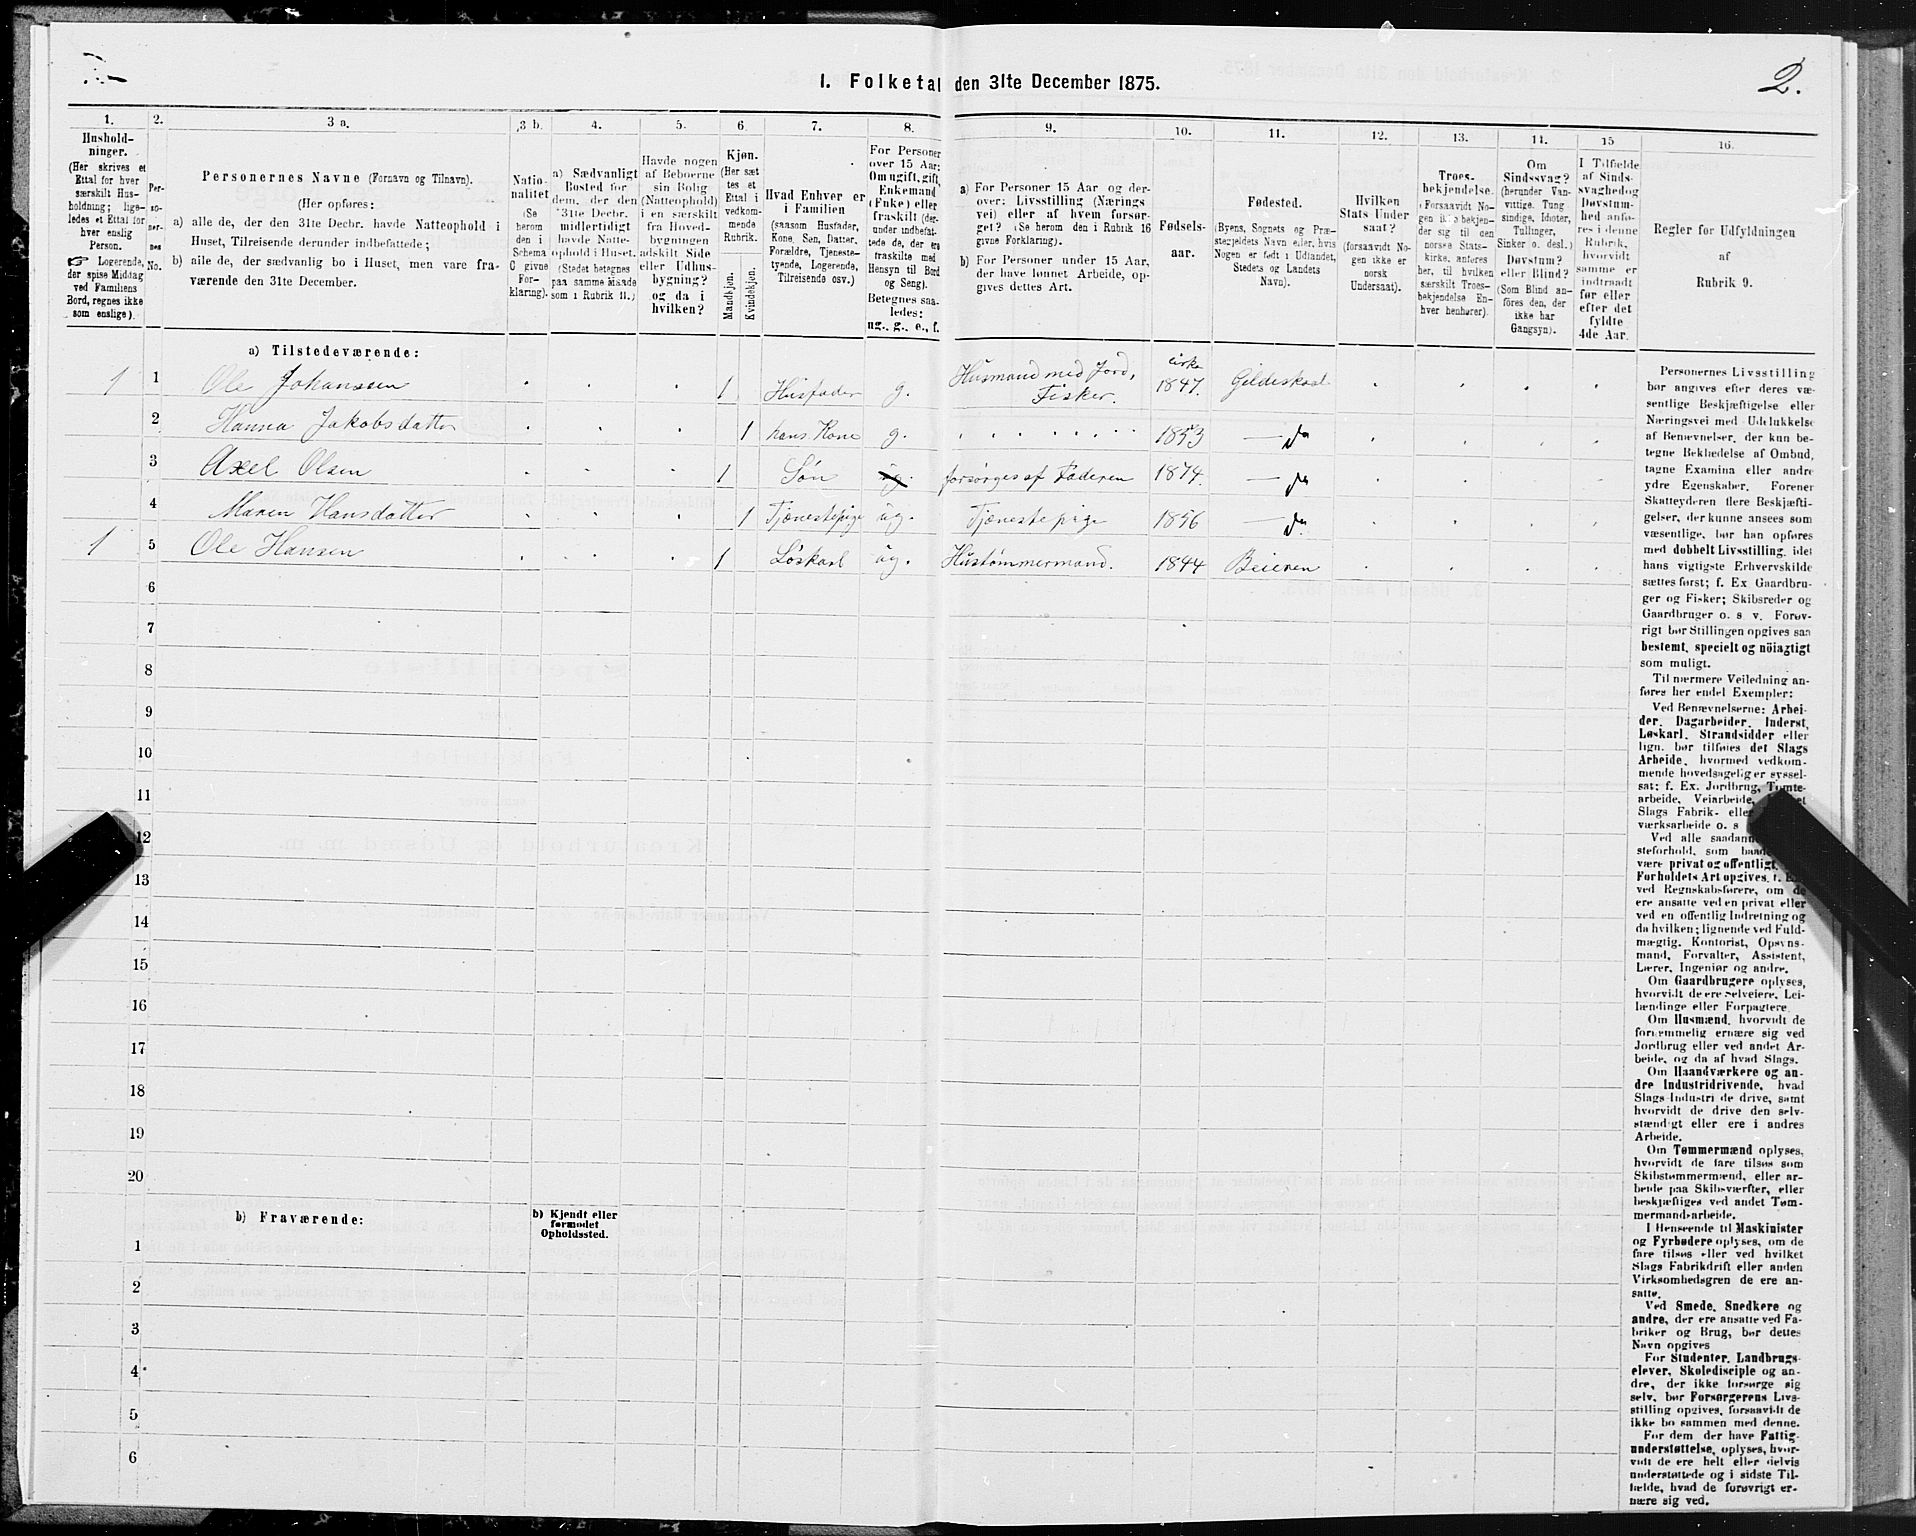 1. Folketal den 31te December 1875.
2.
1.
Hushold-
ninger.
(Her skrives et
Ettal for hver
særskilt Hus-
holdning; lige-
ledes et Ettal for
hver enslig
Person.
☞ Logerende,
der spise Middag
ved Familiens
Bord, regnes ikke
som enslige).
2.
Per-
so-
ner-
nes
No.
3 a.
Personernes Navne (Fornavn og Tilnavn).
(Her opføres:
a) alle de, der den 31te Decbr. havde Natteophold i
Huset, Tilreisende derunder indbefattede;
b) alle de, der sædvanlig bo i Huset, men vare fra-
værende den 31te December.
3 b.
Natio-
nalitet
(Se
herom
den i
Schema
C givne
For-
klaring).
4.
a) Sædvanligt
Bosted for
dem, der den
31te Decbr.
midlertidigt
havde Natte-
ophold i Huset.
(Stedet betegnes
paa samme Maade
som i Rubrik 11.)
5.
Havde nogen
af Beboerne
sin Bolig
(Natteophold)
i en særskilt
fra Hoved-
bygningen
adskilt Side
eller Udhus-
bygning?
og da i
hvilken?
6.
Kjøn.
(Her sæt
tes et
Ettal i
vedkom-
mende
Rubrik.
Mandkjøn.
Kvindekjøn.
7.
Hvad Enhver er
i Familien
(saasom Husfader,
Kone, Søn, Datter,
Forældre, Tjeneste-
tyende, Logerende,
Tilreisende osv.)
8.
For Personer
over 15 Aar:
Om ugift, gift,
Enkemand
(Enke) eller
fraskilt (der-
under indbefat-
tede de, der ere
fraskilte med
Hensyn til Bord
og Seng).
Betegnes saa-
ledes:
ug., g., e., f.
9.
a) For Personer 15 Aar og der-
over: Livsstilling (Nærings
vei) eller af hvem forsør-
get? (Se herom den i Rubrik 16
givne Forklaring).
b) For Personer under 15 Aar,
der have lønnet Arbeide, op-
gives dettes Art.
10.
Fødsels-
aar.
11.
Fødested.
(Byens, Sognets og Præ-
stegjeldets Navn eller, hvis
Nogen er født i Udlandet,
Stedets og Landets
Navn).
12.
Hvilken
Stats Under
saat?
(forsaavidt No-
gen ikke er
norsk
Undersaat).
13.
Troes-
bekjendelse.
(Forsaavidt No-
gen ikke bekjen-
der sig til den
norske Stats-
kirke, anføres
her, til hvilken
særskilt Troes-
bekjendelse En-
hver henhører).
14.
Om
Sindssvag?
(herunder Van-
vittige, Tung
sindige, Idioter,
Tullinger,
Sinker o. desl.)
Døvstum?
eller Blind?
(Som Blind an-
føres den, der
ikke har
Gangsyn).
15
I Tilfælde
af Sinds-
svaghed og
Døvstum-
hed anfø-
res i denne
Rubrik,
hvorvidt
samme er
indtraadt
før eller
efter det
fyldte
4de Aar.
16.
Regler for Udfyldningen
af
Rubrik 9.
a) Tilstedeværende:
1 1 Ole Johanssen 1 Husfader g. Husmand med Jord, Fisker. cirka 1847. Gildeskaal
2 Hanna Jakobsdatter 1 hans Kone g. 1853 — do
3 Axel Olsen 1 Søn ug. forsørges af Faderen 1874. — do
4 Maren Hansdatter 1 Tjenestepige ug. Tjenestepige 1856 — do
1 5 Ole Hansen 1 Løskarl ug. Hustømmermand. 1844 Beieren
6
7
8
9
10
11
12
13
14
15
16
17
18
19
20
b) Fraværende:
b) Kjendt eller
formodet
Opholdssted.
1
2
3
4
5
6
Personernes Livsstilling
bør angives efter deres væ-
sentlige Beskjæftigelse eller
Næringsvei med Udelukkelse
af Benævnelser, der kun be-
tegne Beklædelse af Ombud,
tagne Examina eller andre
ydre Egenskaber. Forener
Skatteyderen flere Beskjæfti-
gelser, der kunne ansees som
væsentlige, bør han opføres
med dobbelt Livsstilling, idet
hans vigtigste Erhvervskilde
sættes først; f. Ex Gaardbru-
ger og Fisker; Skibsreder og
Gaardbruger o. s v. Forøv-
rigt bør Stillingen opgives saa
bestemt, specielt og nöiagtigt
som muligt.
Til nærmere Veiledning an-
føres her endel Exempler:
Ved Benævnelserne: Arbei-
der, Dagarbeider, Inderst,
Løskarl, Strandsidder eller
lign. bør tilføies det Slags
Arbeide, hvormed vedkom-
mende hovedsagelig er syssel-
sat; f. Ex. Jordbrug, Tomte-
arbeide, Veiarbeide,
Slags Fabrik- eller
værksarbeide o. s
Ved alle saadanne
steforhold, som baade
være privat og offentligt,
Forholdets Art opgives, f. Ex.
ved Regnskabsførere, om de
ere ansatte ved en privat eller
ved en offentlig Indretning og
da hvilken; lignende ved Fuld-
mægtig, Kontorist, Opsyns-
mand, Forvalter, Assistent,
Lærer, Ingeniør og andre.
Om Gaardbrugere oplyses,
hvorvidt de ere Selveiere, Lei-
lændinge eller Forpagtere.
Om Husmænd, hvorvidt de
fornemmelig ernære sig ved
Jordbrug eller ved andet Ar-
beide, og da af hvad Slags.
Om Haandværkere og an-
dre Industridrivende, hvad
Slags Industri de drive, samt
hvorvidt de drive den selv-
stændigt eller ere i andres
Arbeide.
Om Tømmermænd oplyses,
hvorvidt de fare tilsøs som
Skibstømmermænd, eller ar-
beide paa Skibsværfter, eller
beskjæftiges ved andet Tøm-
mermandsarbeide.
I Henseende til Maskinister
og Fyrbødere oplyses, om de
fare tilsøs eller ved hvilket
Slags Fabrikdrift eller anden
Virksomhedsgren de ere an-
satte.
Ved Smede, Snedkere og
andre, der ere ansatte ved Fa-
briker og Brug, bør dettes
Navn opgives
For Studenter, Landbrugs-
elever, Skoledisciple og an-
dre, der ikke forsørge sig
selv, bør Forsørgerens Livs-
stilling opgives, forsaavidt de
ikke bo sammen med denne.
For dem der have Fattig-
understøttelse, oplyses, hvor-
vidt de ere helt eller delvis
understøttede og i sidste Til-
fælde, hvad de forøvrigt er-
nære sig ved.